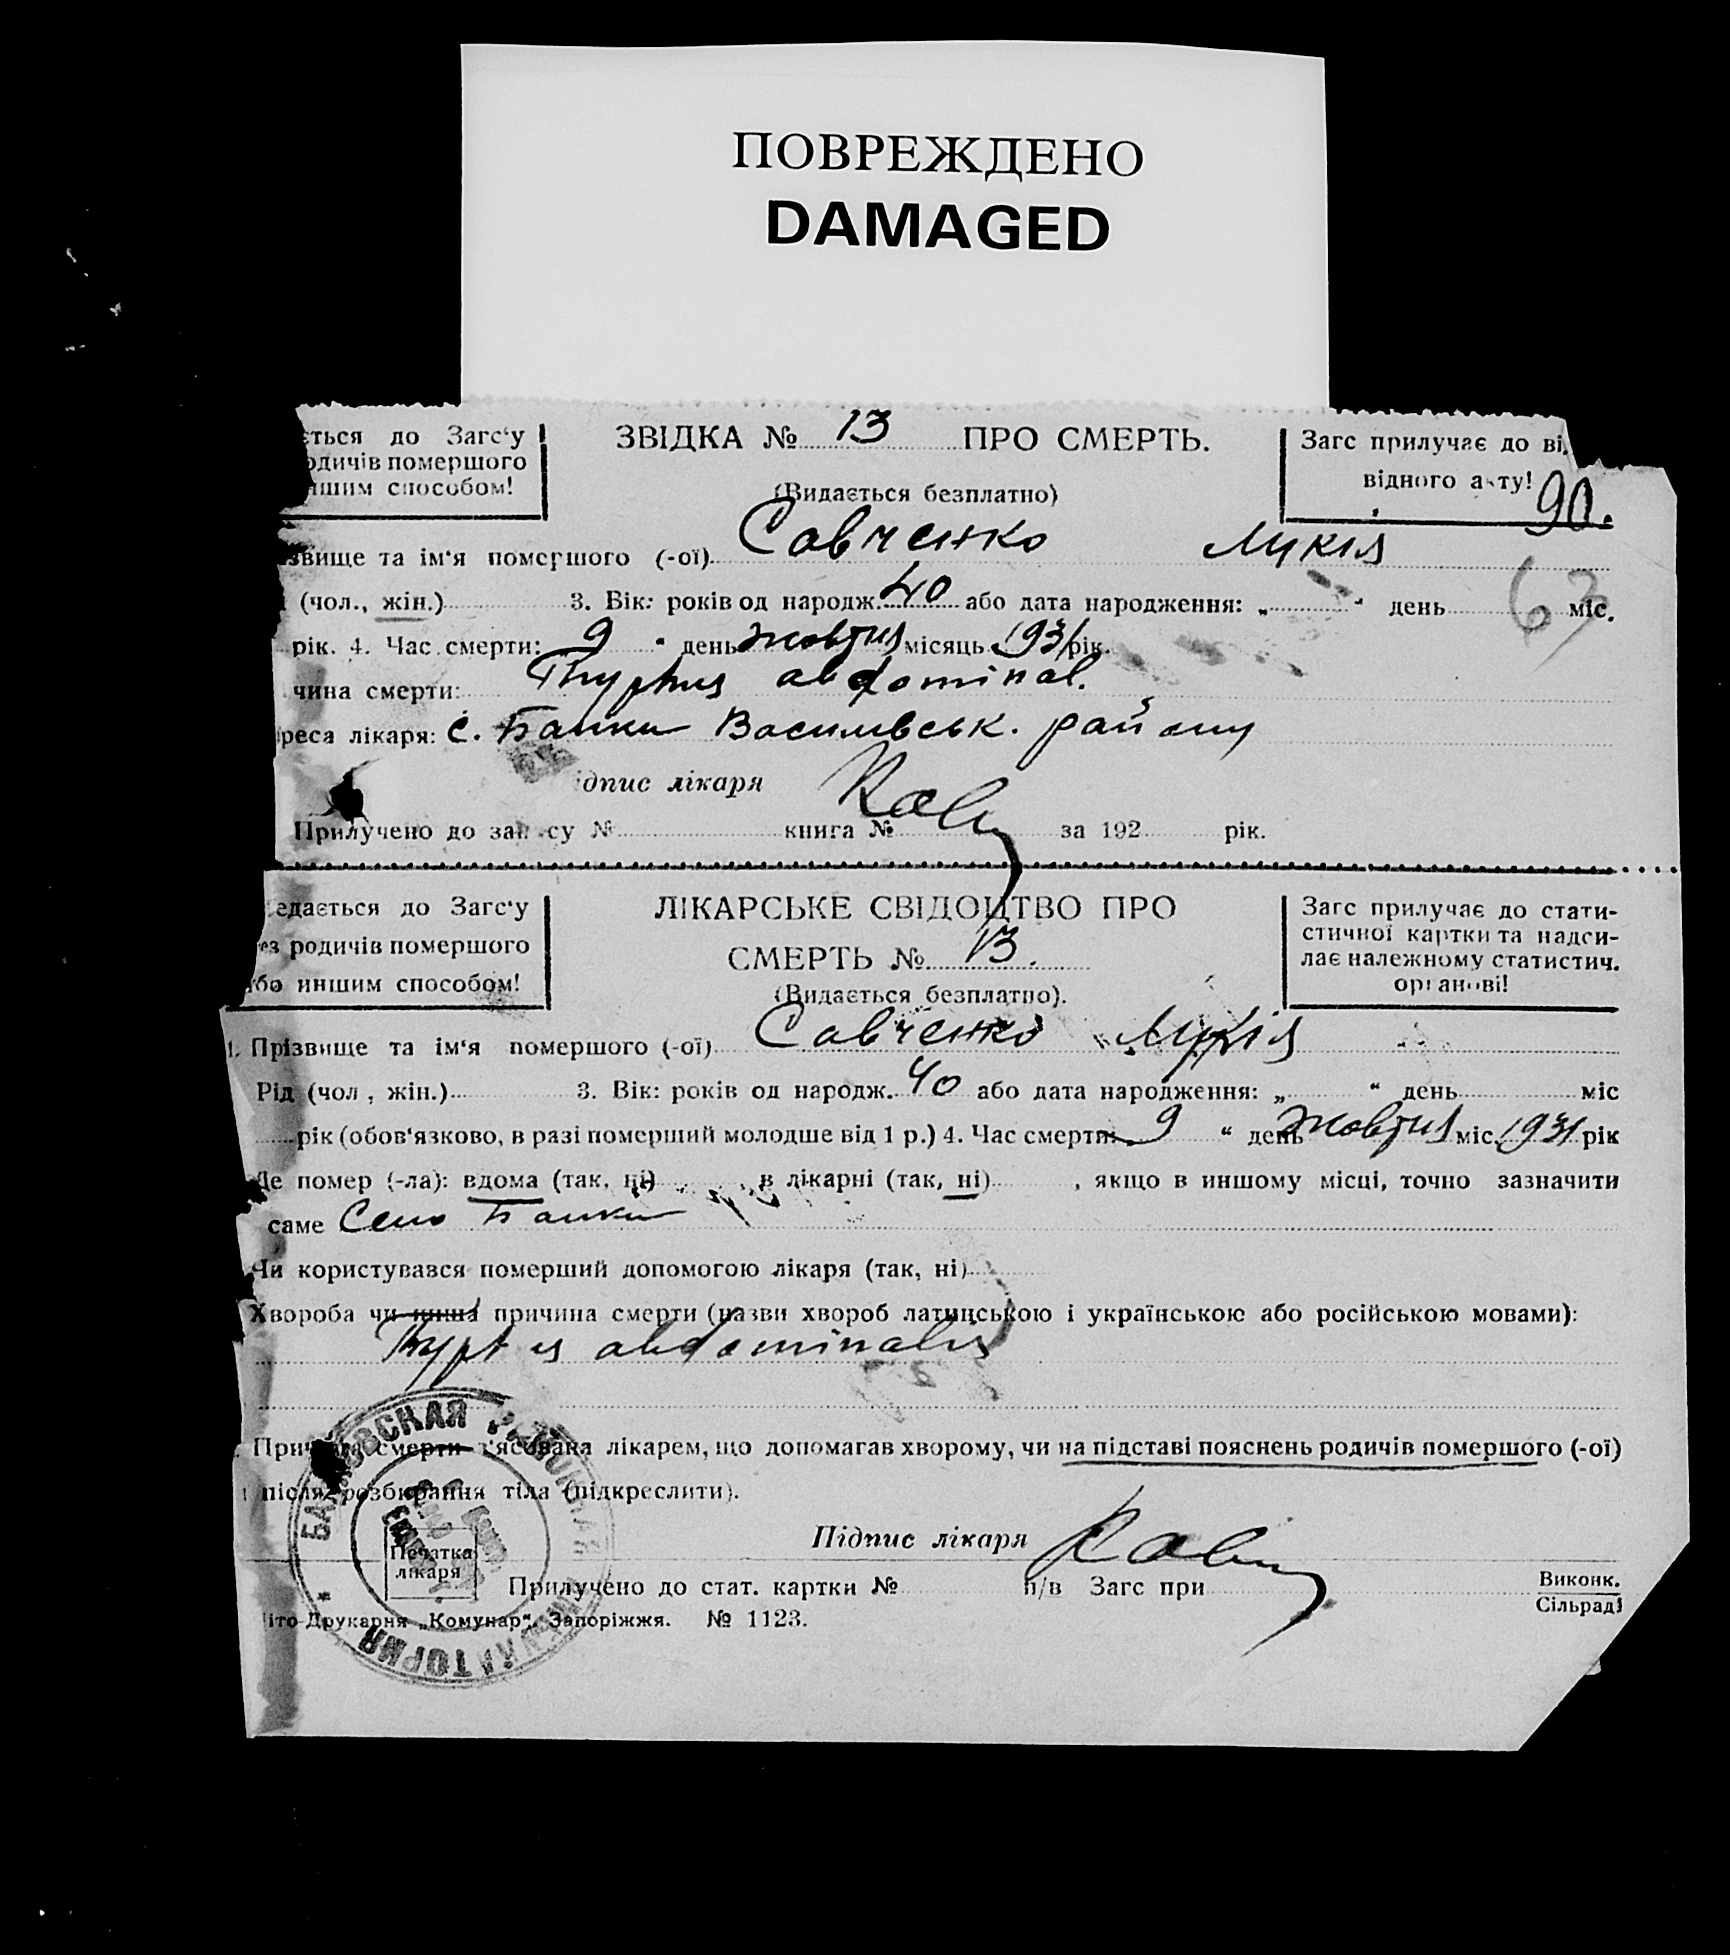 ПОВРЕЖДЕНО
DAMAGED
ється до Загс‘у
одичів помершого
ншим способом!
ЗВІДКА № 13 ПРО СМЕРТЬ.
(Видається безплатно)
Загс прилучає до ві
відного акту!
90.
звище та ім‘я помершого (-ої) Савченко Лукія
(чол., жін.) 3. Вік: років од народж. 40 або дата народження: „ “ день міс.
63
рік. 4. Час смерти: 9 “ день жовтня місяць 1931 рік.
чина смерти: Thyphus abdominal.
реса лікаря: с. Балки Василівськ. району
ідпис лікаря
Прилучено до запису № книга № за 192 рік.
едається до Загс‘у
ез родичів помершого
бо иншим способом!
ЛІКАРСЬКЕ СВІДОЦТВО ПРО
СМЕРТЬ № 13.
(Видається безплатно).
Загс прилучає до стати-
стичної картки та надси-
лає належному статистич.
органові!
1. Прізвище та ім‘я помершого (-ої) Савченко Лукія
Рід (чол., жін.) 3. Вік: років од народж. 40 або дата народження: „ “ день міс
рік (обов‘язково, в разі померший молодше від 1 р.) 4. Час смерти: 9 “ день жовтня міс. 1931 рік
Де помер (-ла): вдома (так, ні) , в лікарні (так, ні) , якщо в иншому місці, точно зазначити
саме Село Балки
Чи користувався померший допомогою лікаря (так, ні)
Хвороба чи инша причина смерти (назви хвороб латинською і українською або російською мовами):
Thyphus abdominalis
Причина смерти з‘ясована лікарем, що допомагав хворому, чи на підставі пояснень родичів помершого (-ої)
після розбирання тіла (підкреслити).
Підпис лікаря
Печатка
лікаря
Прилучено до стат. картки № п/в Загс при Виконк.
Сільраді
іто-Друкарня „Комунар“. Запоріжжя. № 1123.